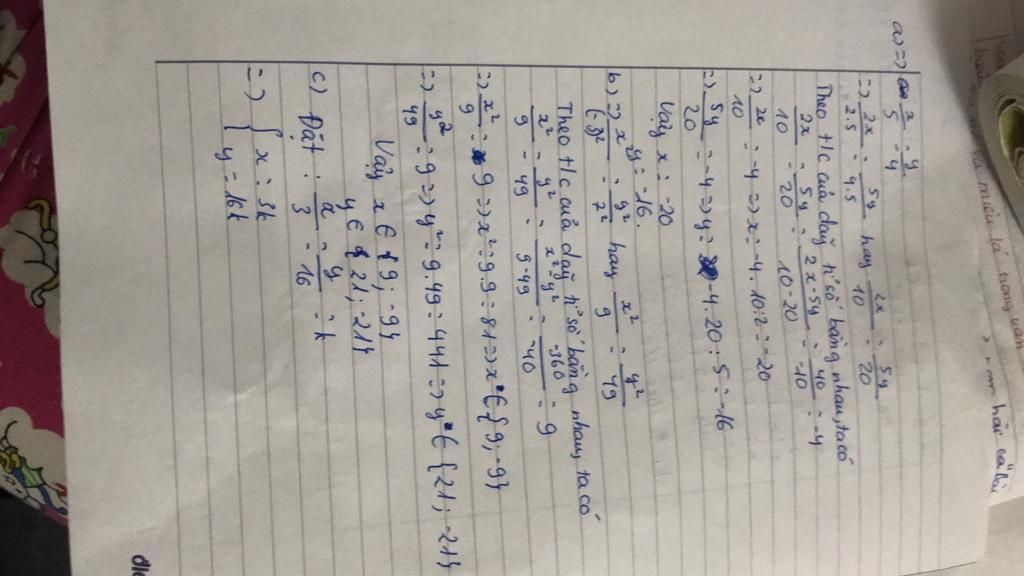 a) => x/5 = y/4
=> 2x/2.5 = 5y/4.5 hay 2x/10 = 5y/20
Theo t/c của dãy tỉ số bằng nhau, ta có
2x/10 = 5y/20 = 2x-5y/10-20 = 40/-10 = -4
=> 2x/10 = -4 => x = -4.10:2 = -20
=> 5y/20 = -4 => y = -4.20:5 = -16
Vậy x = -20
y = -16.
b) => x²/(-3)² = y²/7² hay x²/9 = y²/49
Theo t/c của dãy tỉ số bằng nhau, ta có
x²/9 = y²/49 = x²-y²/9-49 = -360/-40 = 9
=> x²/9 = 9 => x² = 9.9 = 81 => x ∈ {9; -9}
=> y²/49 = 9 => y² = 9.49 = 441 => y ∈ {21; -21}
Vậy x ∈ {9; -9}
y ∈ {21; -21}
c) Đặt: x/3 = y/16 = k
=> { x = 3k
y = 16k